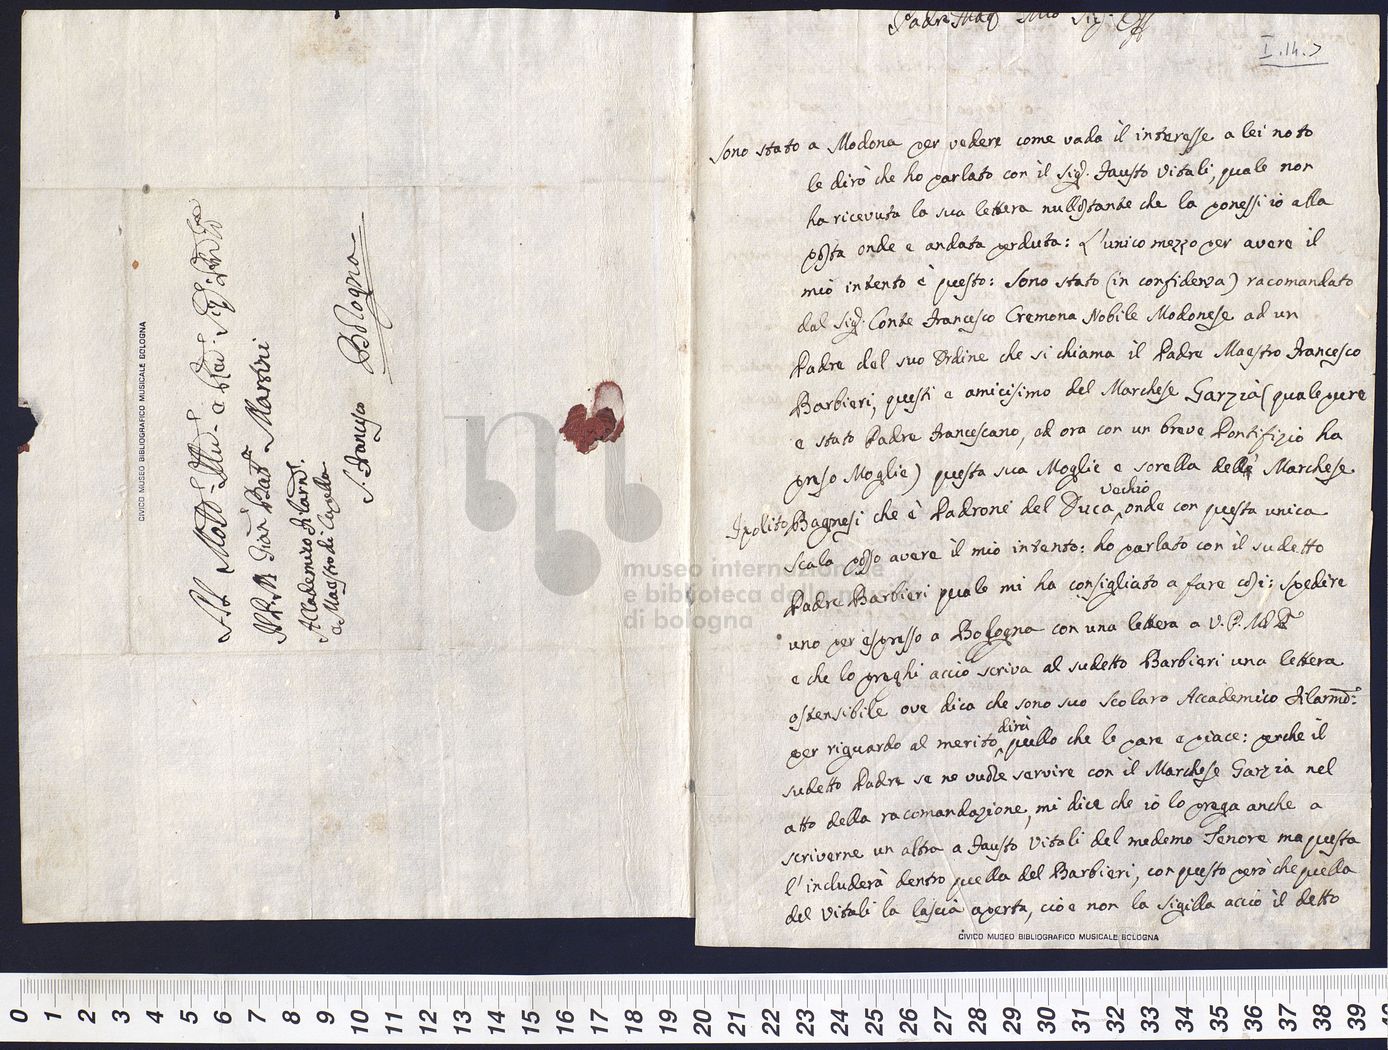 Al Molto Illre e Rev: Sig: Sig:
Il P. M. Gioan Batta Martini
Accademico Filarm:
e Maestro di Capella
S. Francesco Bologna
CIVICO MUSEO BIBLIOGRAFICO MUSICALE BOLOGNA
museo internazionale
e biblioteca della musica
di bologna
Padre Maes Mio Sig:
I.14.7
Sono stato a Modona per vedere come vada il interesse a lei noto
le dirò che ho parlato con il Sig. Fausto Vitali, quale non
ha ricevuta la sua lettera nullostante che la ponessi io alla
posta onde e andata perduta: L'unico mezzo per avere il
mio intento è questo: sono stato (in confidenza) racomandato
dal Sig. Conte Francesco Cremona Nobile Modonese ad un
Padre del suo Ordine che si chiama il Padre Maestro Francesco
Barbieri, questi e amicisimo del Marchese Garzia (quale pure
e stato Padre Francescano, ed ora con un breve Pontifizio ha
preso Moglie) questa sua Moglie e sorella delle Marchese
Ipolito Bagnesi che è Padrone del Duca vechio, onde con questa unica
scala posso avere il mio intento: ho parlato con il sudetto
Padre Barbieri quale mi ha consigliato a fare così: spedire
uno per espresso a Bologna con una lettera a V. P. M. R.
e che lo preghi acciò scriva al sudetto Barbieri una lettera
ostensibile ove dica che sono suo scolaro Accademico Filarmo:
per riguardo al merito dirà quello che le pare e piace: perche il
sudetto Padre se ne vuole servire con il Marchese Garzia nel
atto della racomandazione, mi dice che io lo prega anche a
scriverne un altra a Fausto Vitali del medemo Tenore ma questa
l'includerà dentro quella del Barbieri, con questo però che quella
del Vitali la lascia aperta, cioè non la sigilla acciò il detto
CIVICO MUSEO BIBLIOGRAFICO MUSICALE BOLOGNA
0 1 2 3 4 5 6 7 8 9 10 11 12 13 14 15 16 17 18 19 20 21 22 23 24 25 26 27 28 29 30 31 32 33 34 35 36 37 38 39